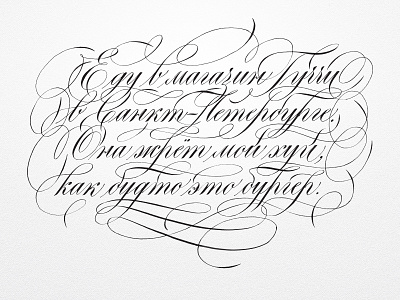 Еду в магазин Гуччи
в Санкт-Петербурге;
Она жрёт мой хуй,
как будто это бургер.